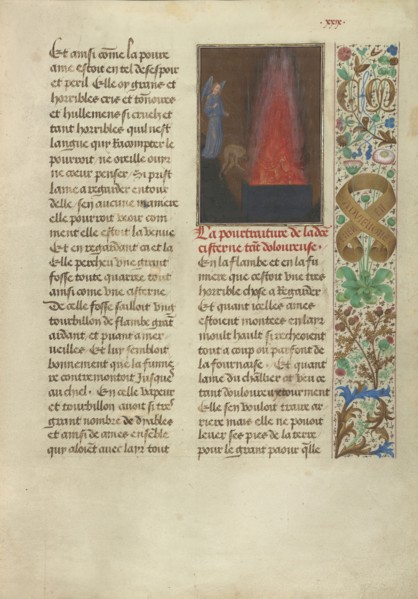 .xxix.
Et ainsi cōme la poure
ame estoit en tel desespoir
et peril Elle oy grans et
horribles cris et tōnoires
et hullemens si cruelz et
tant horribles quil nest
langue quy Racompter le
pourroit ne oreille ouyr
ne coeur penser Si prist
lame a regarder entour
delle sen aucune maniere
elle pourroit veoir com
ment elle estoit la venue
Et en regardant ca et la
Elle percheu vng grant
fosse toute quarree tout
ainsi come vne cisterne
De celle fosse sailloit vng
tourbillon de flambe grāt
ardant et puant a mer
veilles Et luy sembloit
bonnement que la fumee
contremontoit Jusques
au chiel En celle vapeur
et tourbillon auoit si tres
grant nombre de dyables
et ainsi de ames ensēble
quy aloient avec layr tout
La pourtraiture de la
cisterne trāt doloureuse
En la flambe et en la fu
miere que cestoit vne tres
horrible chose a Regarder
Et quant icelles ames
estoient montees en layr
moult hault si rechëoient
tout a coup ou parfont de
la fournaise Et quant
lame du cħllier eut veu ce
tant douloureux tourment
Elle sen vouloit traire ar
riere mais elle ne pouoit
leuer ses pies de la terre
pour le grant paour qlle